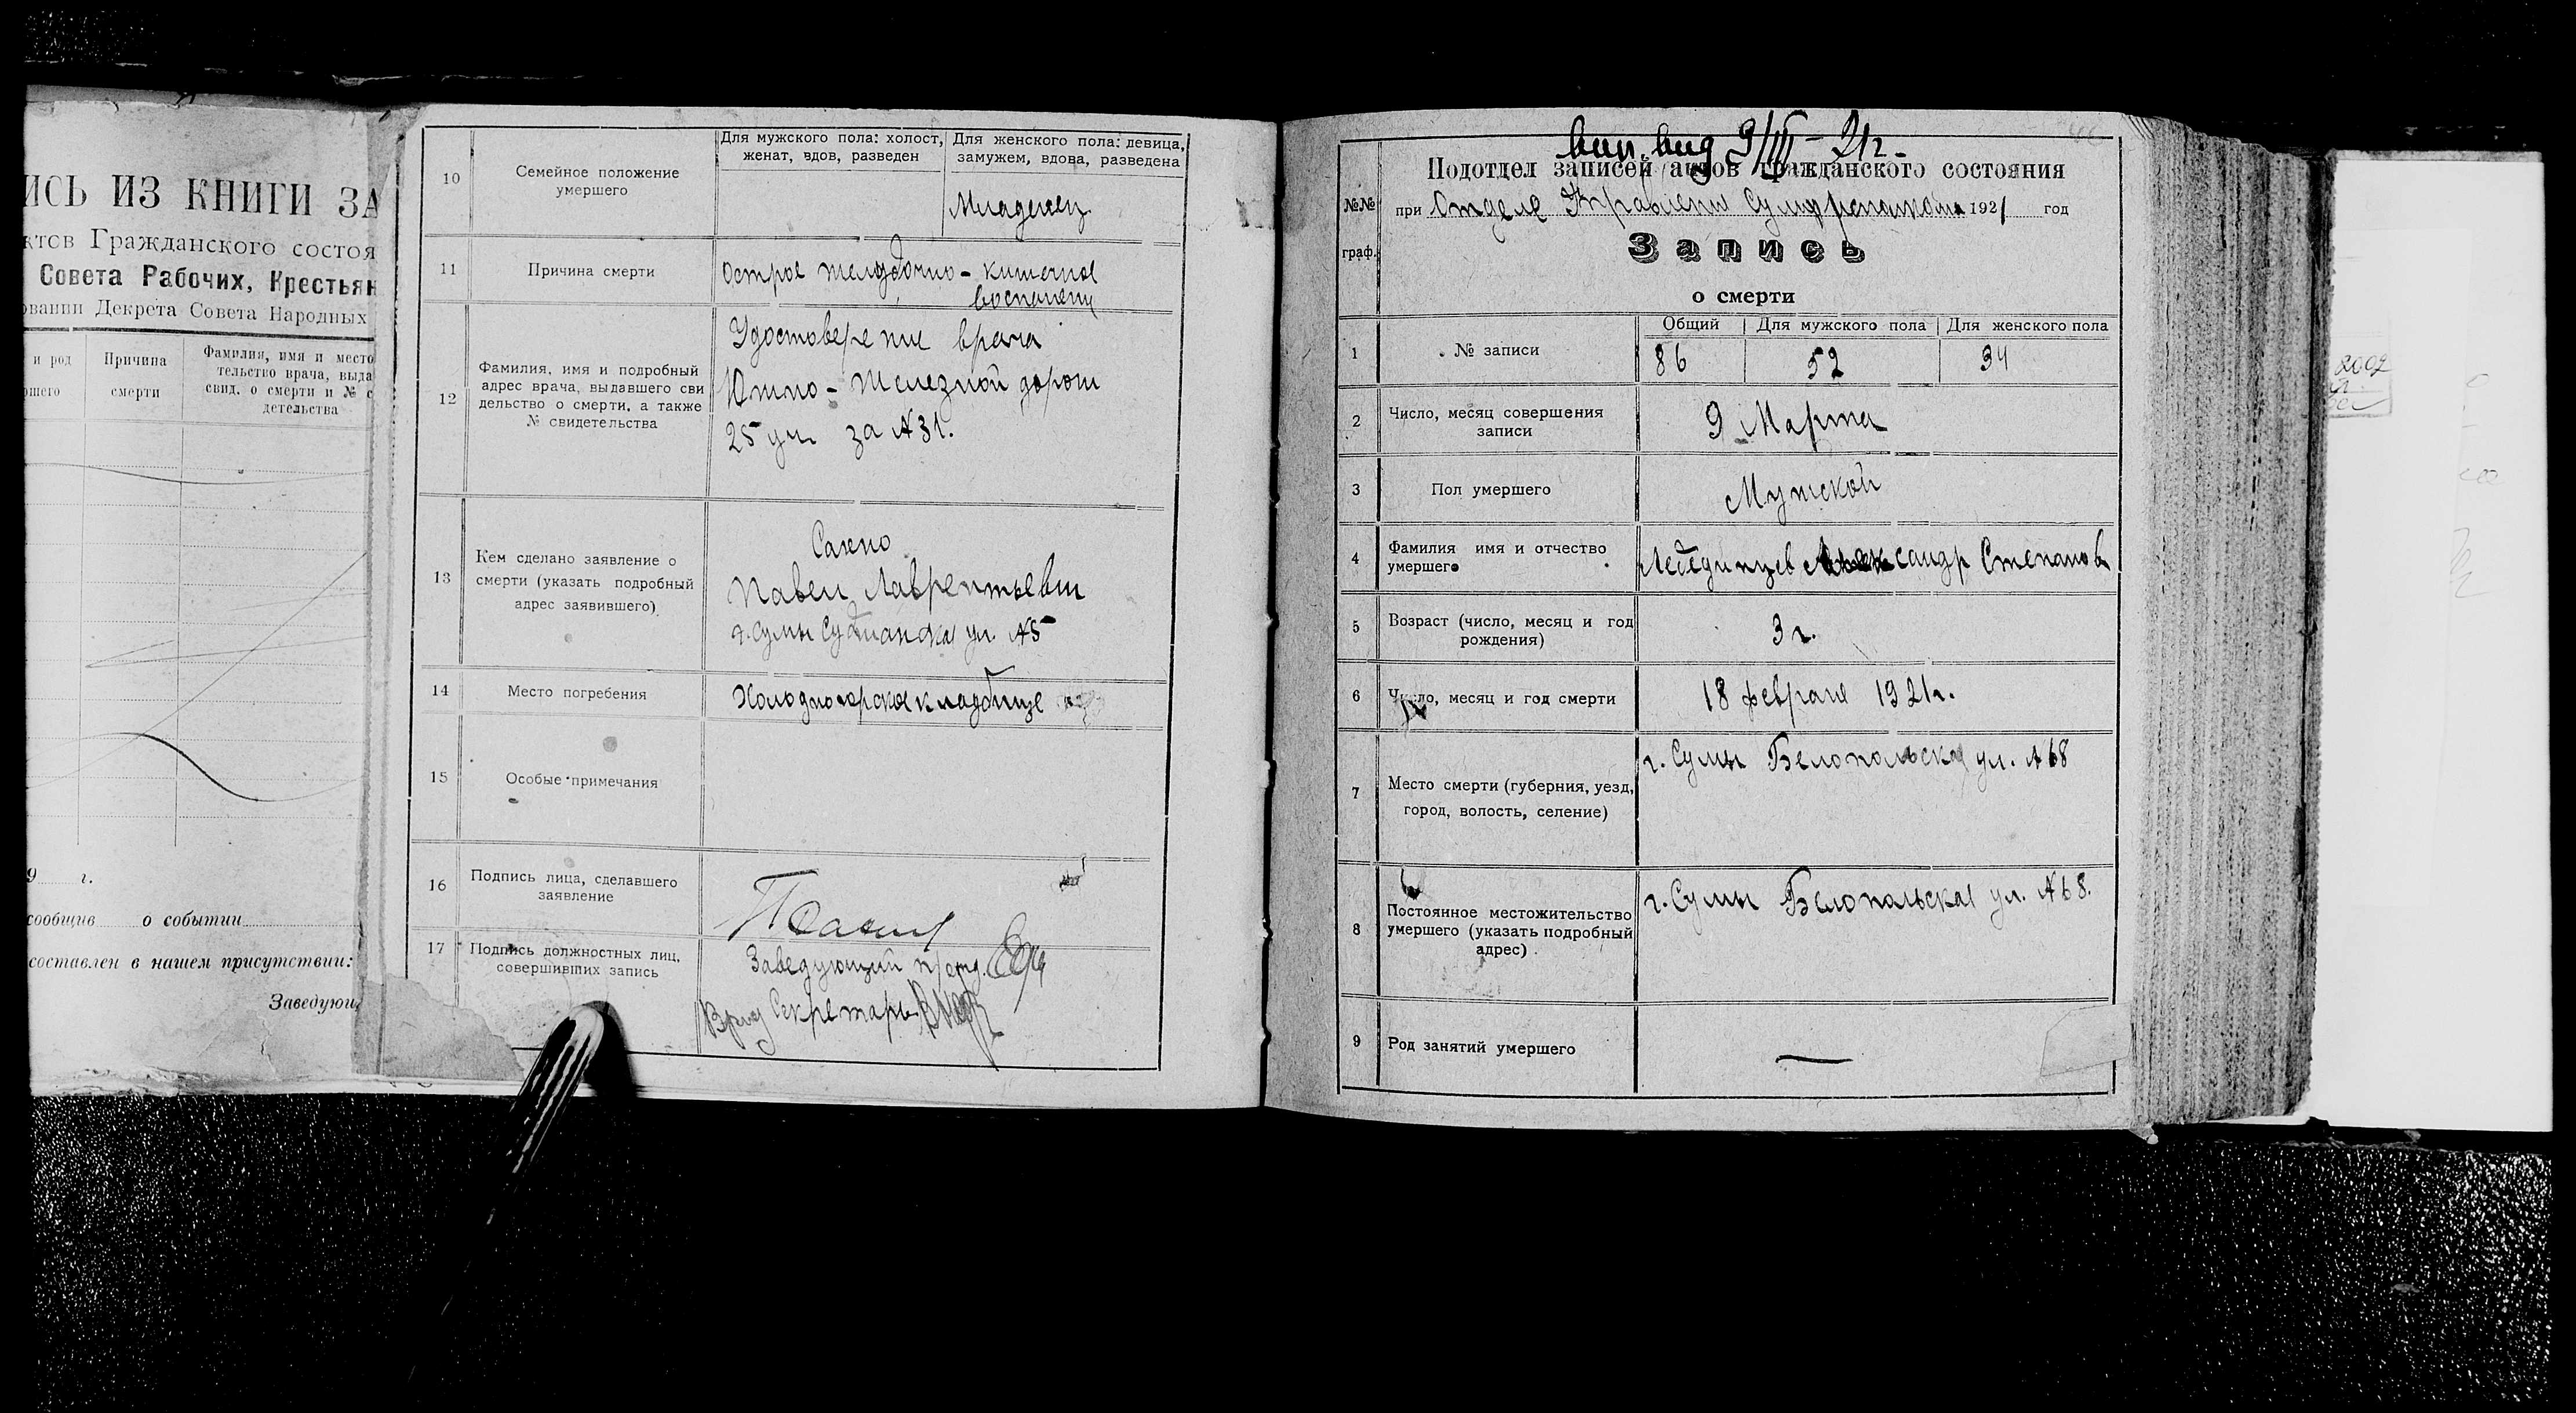 ИСЬ ИЗ КНИГИ ЗА
ктов Гражданского состоя
Совета Рабочих, Крестьян
овании Декрета Совета Народных
и род
ршего
Причина
смерти
Фамилия, имя и место
тельство врача, выда
свид. о смерти и № с
детельства
9 г.
сообщив о событии
составлен в нашем присутствии:
Заведующ
10
Семейное положение
умершего
Для мужского пола: холост,
женат, вдов, разведен
Для женского пола: девица,
замужем, вдова, разведена
Младенец
11
Причина смерти
Острое желудочно-кишечное
воспаление
12
Фамилия, имя и подробный
адрес врача, выдавшего сви
дельство о смерти, а также
№ свидетельства
Удостоверение врача
Южно-Железной дороги
25 уч. за №31.
13
Кем сделано заявление о
смерти (указать подробный
адрес заявившего)
Сахно
Павел Лаврентьевич
г. Сумы ул. №5
14
Место погребения
Холодногорское кладбище
15
Особые примечания
16
Подпись лица, сделавшего
заявление
17
Подпись должностных лиц,
совершивших запись
Заведующий п/отд.
Врид Секретарь
вып. вид 9/III-21г.
Подотдел записей актов гражданского состояния
№№
граф.
при Отделе Управления 1921 год
Запись
о смерти
1
№ записи
Общий
Для мужского пола
Для женского пола
86
52
34
2
Число, месяц совершения
записи
9 Марта
3
Пол умершего
Мужской
4
Фамилия имя и отчество
умершего
Лебединцев Александр Степанов
5
Возраст (число, месяц и год
рождения)
3 г.
6
Число, месяц и год смерти
18 февраля 1921г.
7
Место смерти (губерния, уезд,
город, волость, селение)
г. Сумы Белопольская ул. №68
8
Постоянное местожительство
умершего (указать подробный
адрес)
г. Сумы Белопольская ул. №68.
9
Род занятий умершего
—
2002